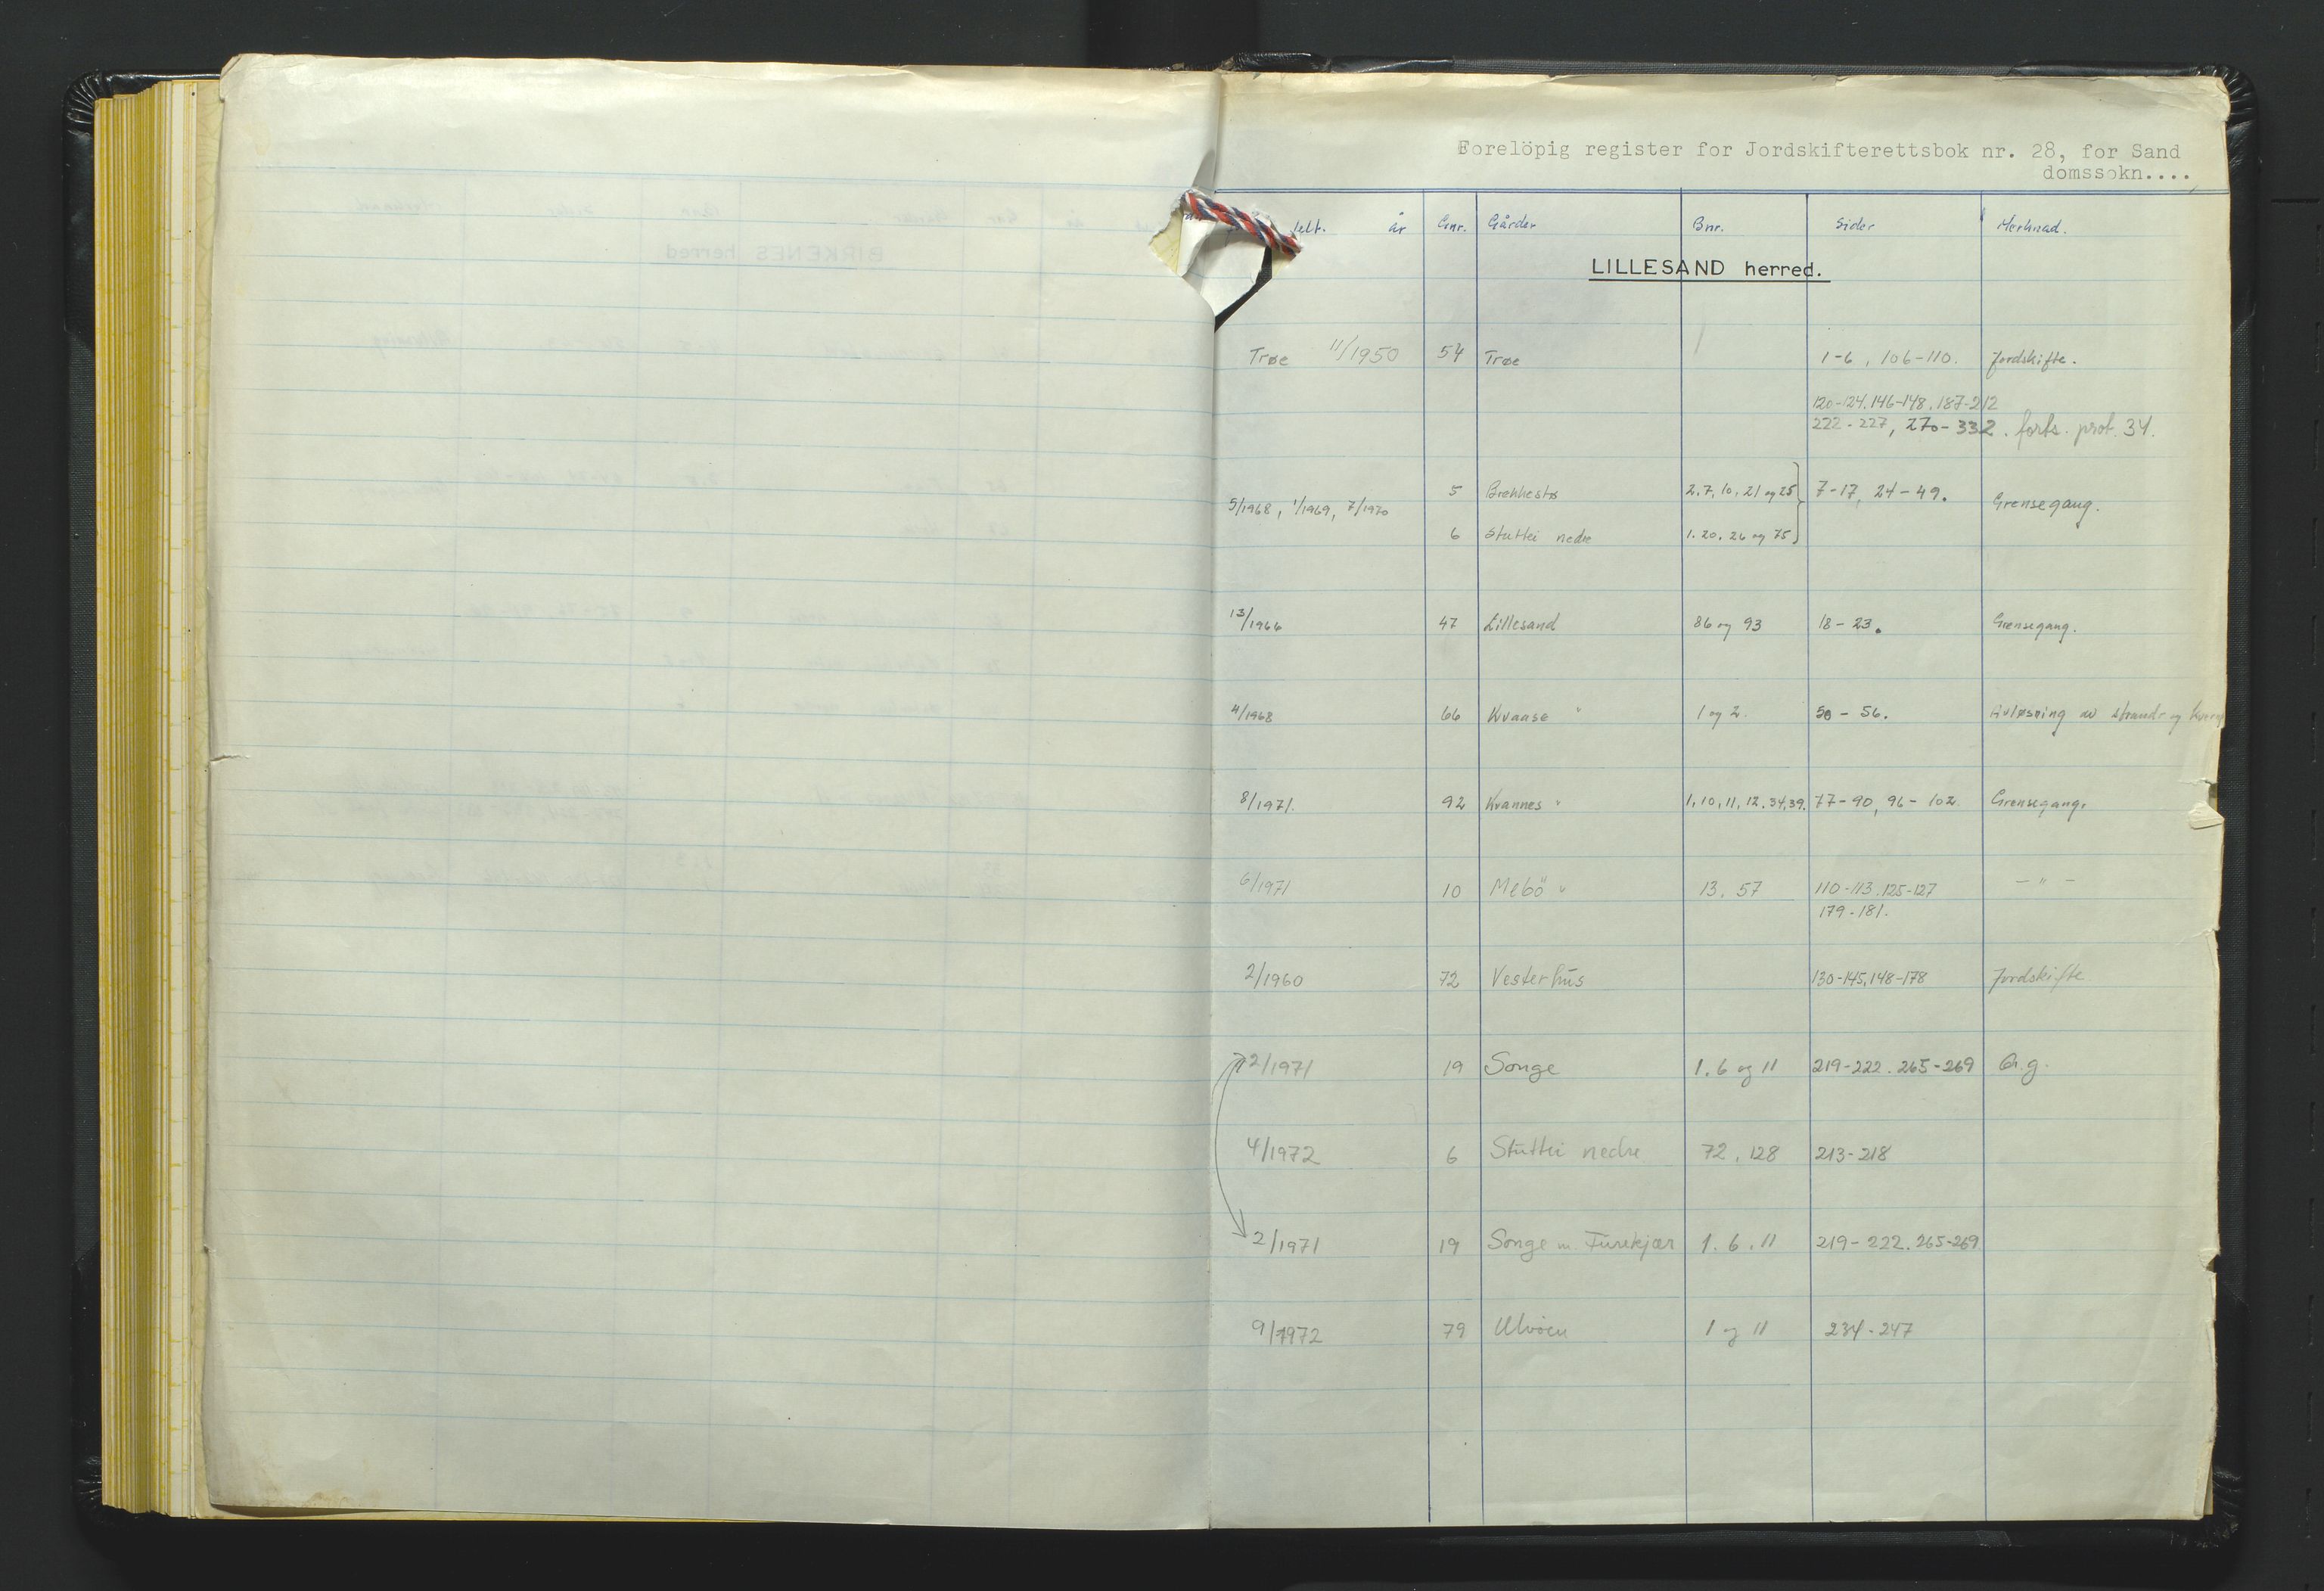 Forelöpig register for Jordskifterettsbok nr. 28, for Sand
domssokn....
felt. år Gnr. Gårder Bnr. Sider Merknad.
LILLESAND herred.
Trøe 11/1950 54 Trøe 1-6, 106-110. Jordskifte.
120-124. 146-148. 187-212
222-227, 270-332. forts. prot. 34.
5 Brekkestø 2.7, 10, 21 og 25 7-17, 24-49.
5/1968, 1/1969, 7/1970 Grensegang.
6 Stuttei nedre 1. 20. 26 og 75
13/1966 47 Lillesand 86 og 93 18-23. Grensegang.
4/1968 66 Kvaase " 1 og 2. 50-56. Avløsning av strand- og
8/1971. 92 Kvannes " 1, 10, 11, 12. 34, 39. 77-90, 96-102 Grensegang.
6/1971 10 Mebö " 13. 57 110-113. 125-127 -"-
179-181.
2/1960 72 Vesterhus 130-145, 148-178 Jordskifte
2/1971 19 Songe 1. 6 og 11 219-222. 265-269 G.g.
4/1972 6 Stuttei nedre 72. 128 213-218
2/1971 19 Songe m. Furekjær 1. 6. 11 219-222. 265-269
9/1972 79 Ulvöen 1 og 11 234-247